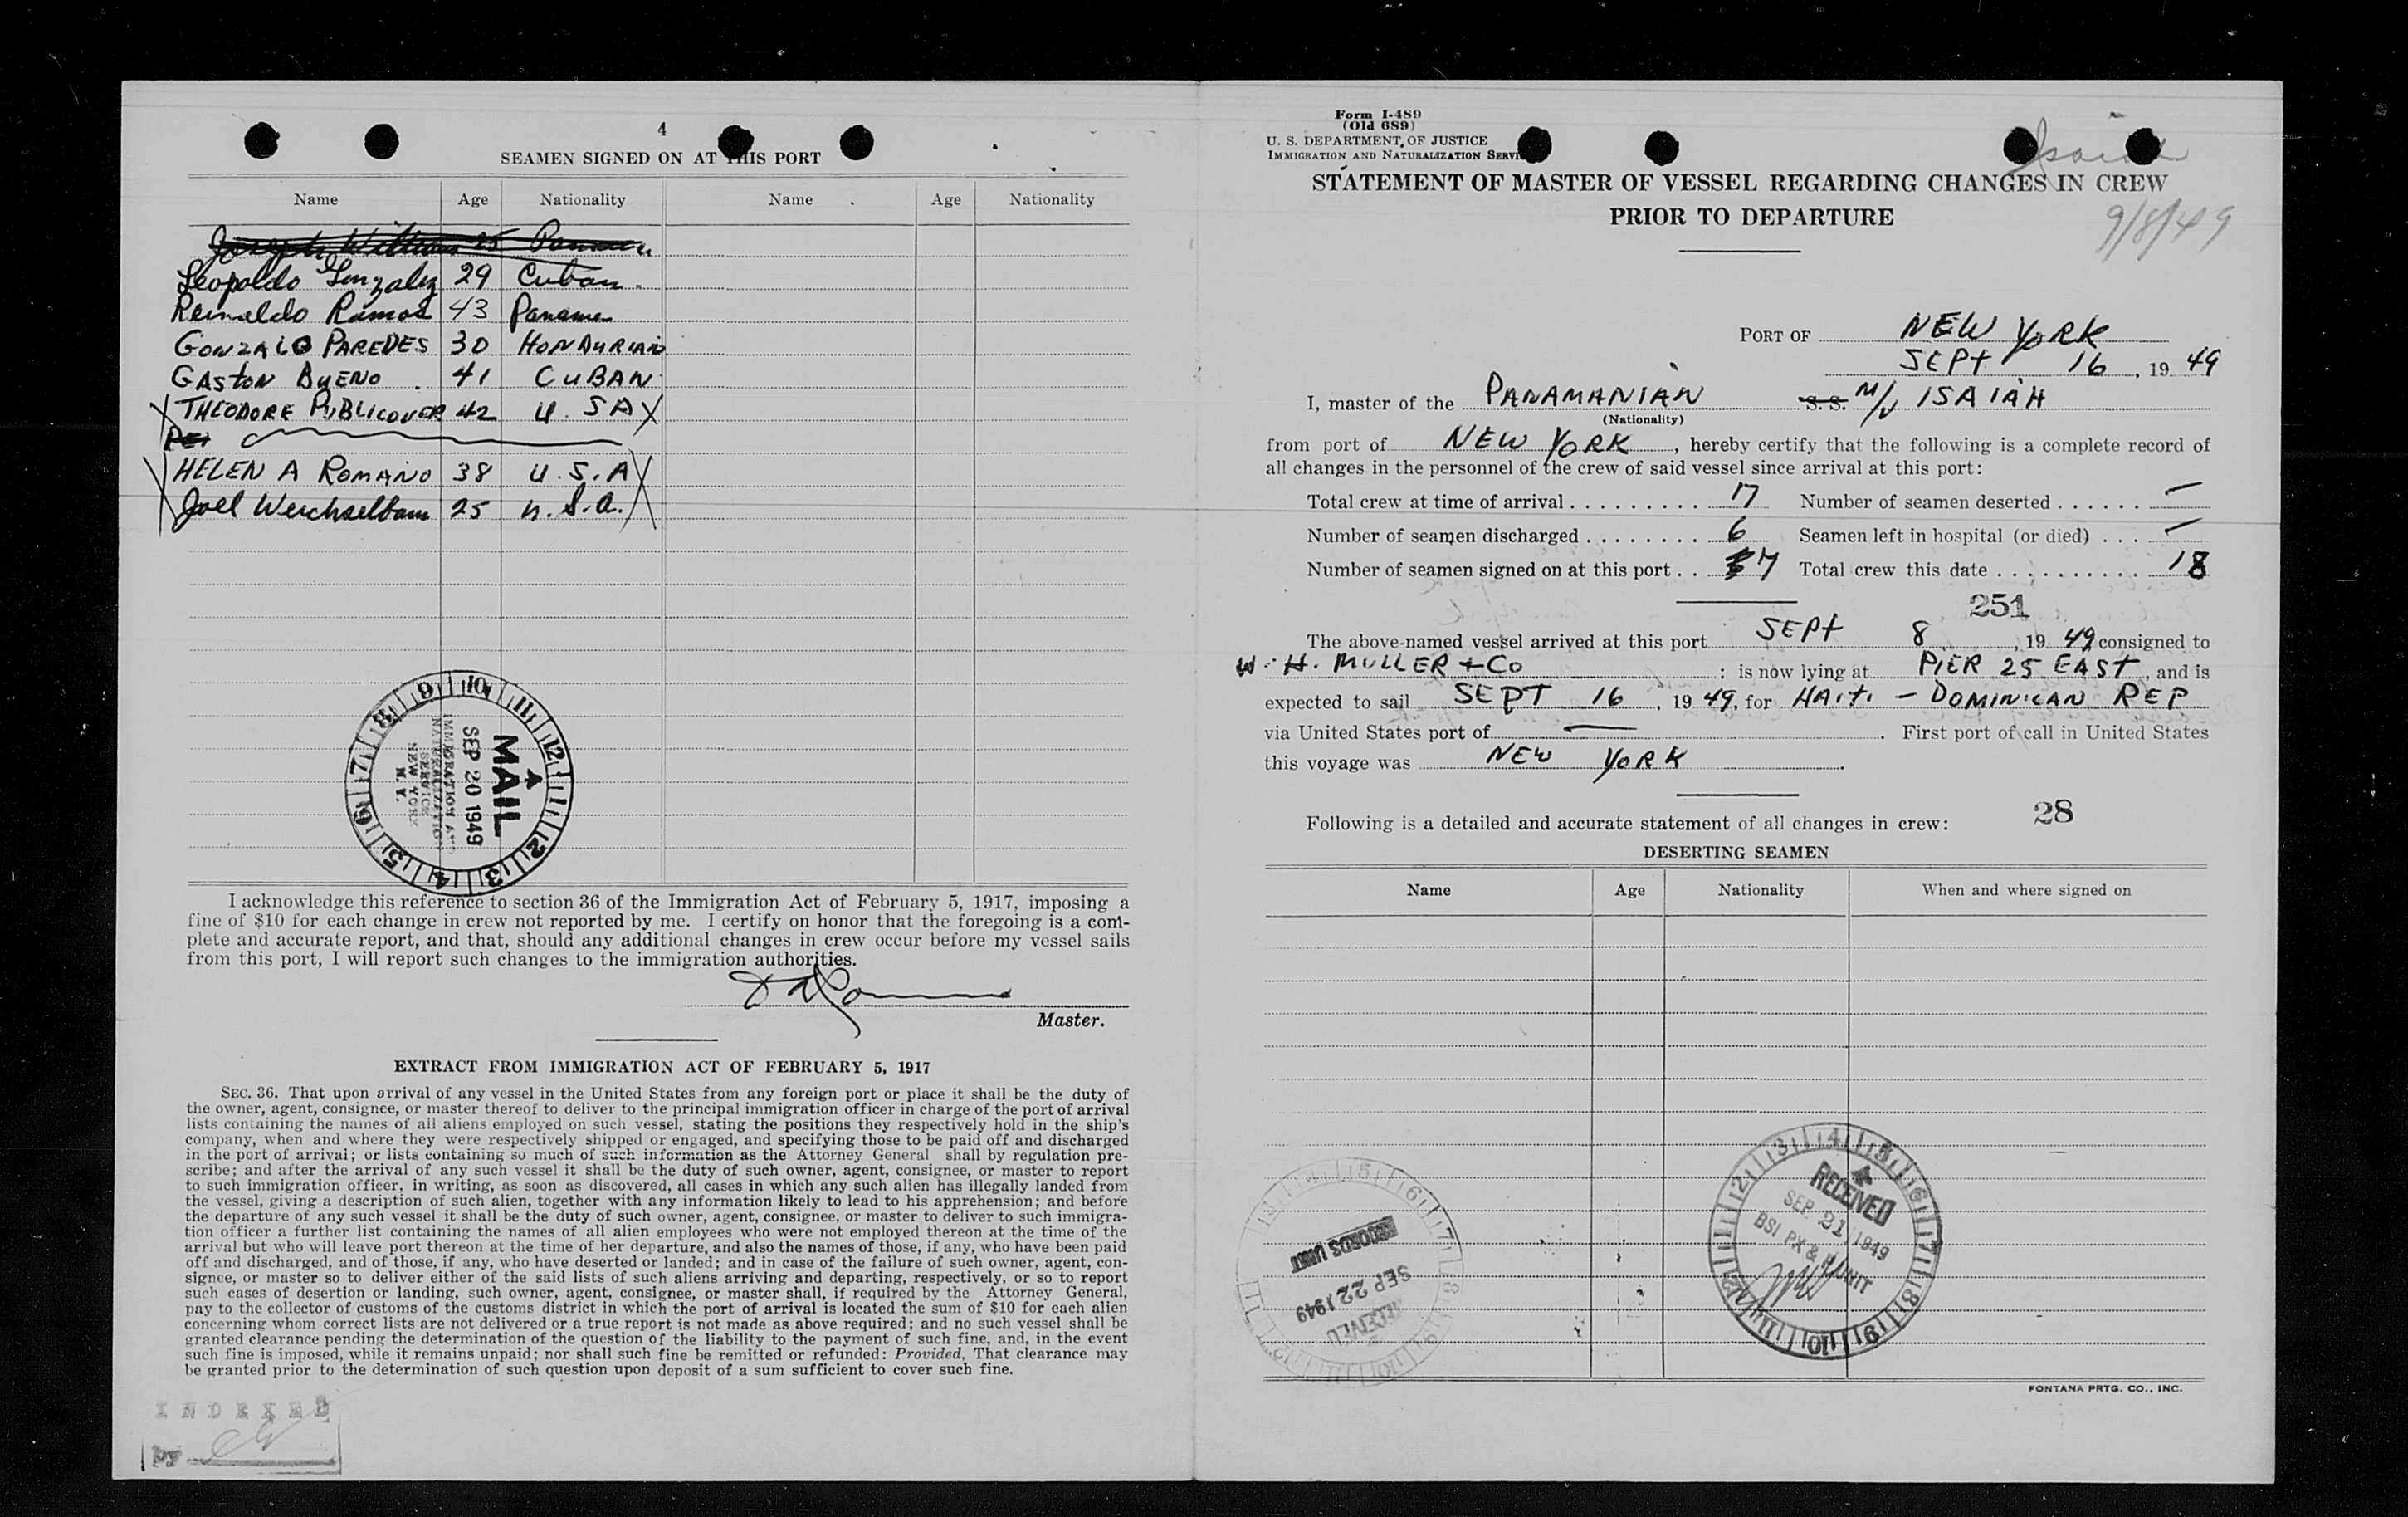 4
SEAMEN SIGNED ON AT THIS PORT
Name Age Nationality Name Age Nationality
Joseph Williams 25 Panama
Leopoldo Gonzalez 29 Cuban.
Reinaldo Ramos 43 Panama
GONZALO PAREDES 30 HONDURIAN
GASTON BUENO . 41 CUBAN
X THEODORE PUBLICOVER 42 U. S A X
HELEN A ROMANO 38 U. S. A
Joel Weichselbam 25 U. S. A.
MAIL
SEP 20 1949
IMMIGRATION AND
NATURALIZATION
SERVICE
NEW YORK
N. Y.
I acknowledge this reference to section 36 of the Immigration Act of February 5, 1917, imposing a
fine of $10 for each change in crew not reported by me. I certify on honor that the foregoing is a com-
plete and accurate report, and that, should any additional changes in crew occur before my vessel sails
from this port, I will report such changes to the immigration authorities.
Master.
EXTRACT FROM IMMIGRATION ACT OF FEBRUARY 5, 1917
SEC. 36. That upon arrival of any vessel in the United States from any foreign port or place it shall be the duty of
the owner, agent, consignee, or master thereof to deliver to the principal immigration officer in charge of the port of arrival
lists containing the names of all aliens employed on such vessel, stating the positions they respectively hold in the ship's
company, when and where they were respectively shipped or engaged, and specifying those to be paid off and discharged
in the port of arrival; or lists containing so much of such information as the Attorney General shall by regulation pre-
scribe; and after the arrival of any such vessel it shall be the duty of such owner, agent, consignee, or master to report
to such immigration officer, in writing, as soon as discovered, all cases in which any such alien has illegally landed from
the vessel, giving a description of such alien, together with any information likely to lead to his apprehension; and before
the departure of any such vessel it shall be the duty of such owner, agent, consignee, or master to deliver to such immigra-
tion officer a further list containing the names of all alien employees who were not employed thereon at the time of the
arrival but who will leave port thereon at the time of her departure, and also the names of those, if any, who have been paid
off and discharged, and of those, if any, who have deserted or landed; and in case of the failure of such owner, agent, con-
signee, or master so to deliver either of the said lists of such aliens arriving and departing, respectively, or so to report
such cases of desertion or landing, such owner, agent, consignee, or master shall, if required by the Attorney General,
pay to the collector of customs of the customs district in which the port of arrival is located the sum of $10 for each alien
concerning whom correct lists are not delivered or a true report is not made as above required; and no such vessel shall be
granted clearance pending the determination of the question of the liability to the payment of such fine, and, in the event
such fine is imposed, while it remains unpaid; nor shall such fine be remitted or refunded: Provided, That clearance may
be granted prior to the determination of such question upon deposit of a sum sufficient to cover such fine.
INDEXED
by
Form I-489
(Old 689)
U. S. DEPARTMENT OF JUSTICE
IMMIGRATION AND NATURALIZATION SERVICE
Isaiah
STATEMENT OF MASTER OF VESSEL REGARDING CHANGES IN CREW
PRIOR TO DEPARTURE
9/8/49
PORT OF NEW YORK
SEPT 16, 19 49
I, master of the PANAMANIAN S. S. M/V ISAIAH
(Nationality)
from port of NEW YORK, hereby certify that the following is a complete record of
all changes in the personnel of the crew of said vessel since arrival at this port:
Total crew at time of arrival 17 Number of seamen deserted —
Number of seamen discharged 6 Seamen left in hospital (or died) —
Number of seamen signed on at this port 7 Total crew this date 18
251
The above-named vessel arrived at this port SEPT 8, 19 49, consigned to
W. H. MULLER + CO : is now lying at PIER 25 EAST, and is
expected to sail SEPT 16, 19 49, for HAITI — DOMINICAN REP
via United States port of —. First port of call in United States
this voyage was NEW YORK.
28
Following is a detailed and accurate statement of all changes in crew:
DESERTING SEAMEN
Name Age Nationality When and where signed on
RECEIVED
SEP 21 1949
BSI PX & UNIT
RECORDS UNIT
SEP 22 1949
RECEIVED
FONTANA PRTG. CO., INC.